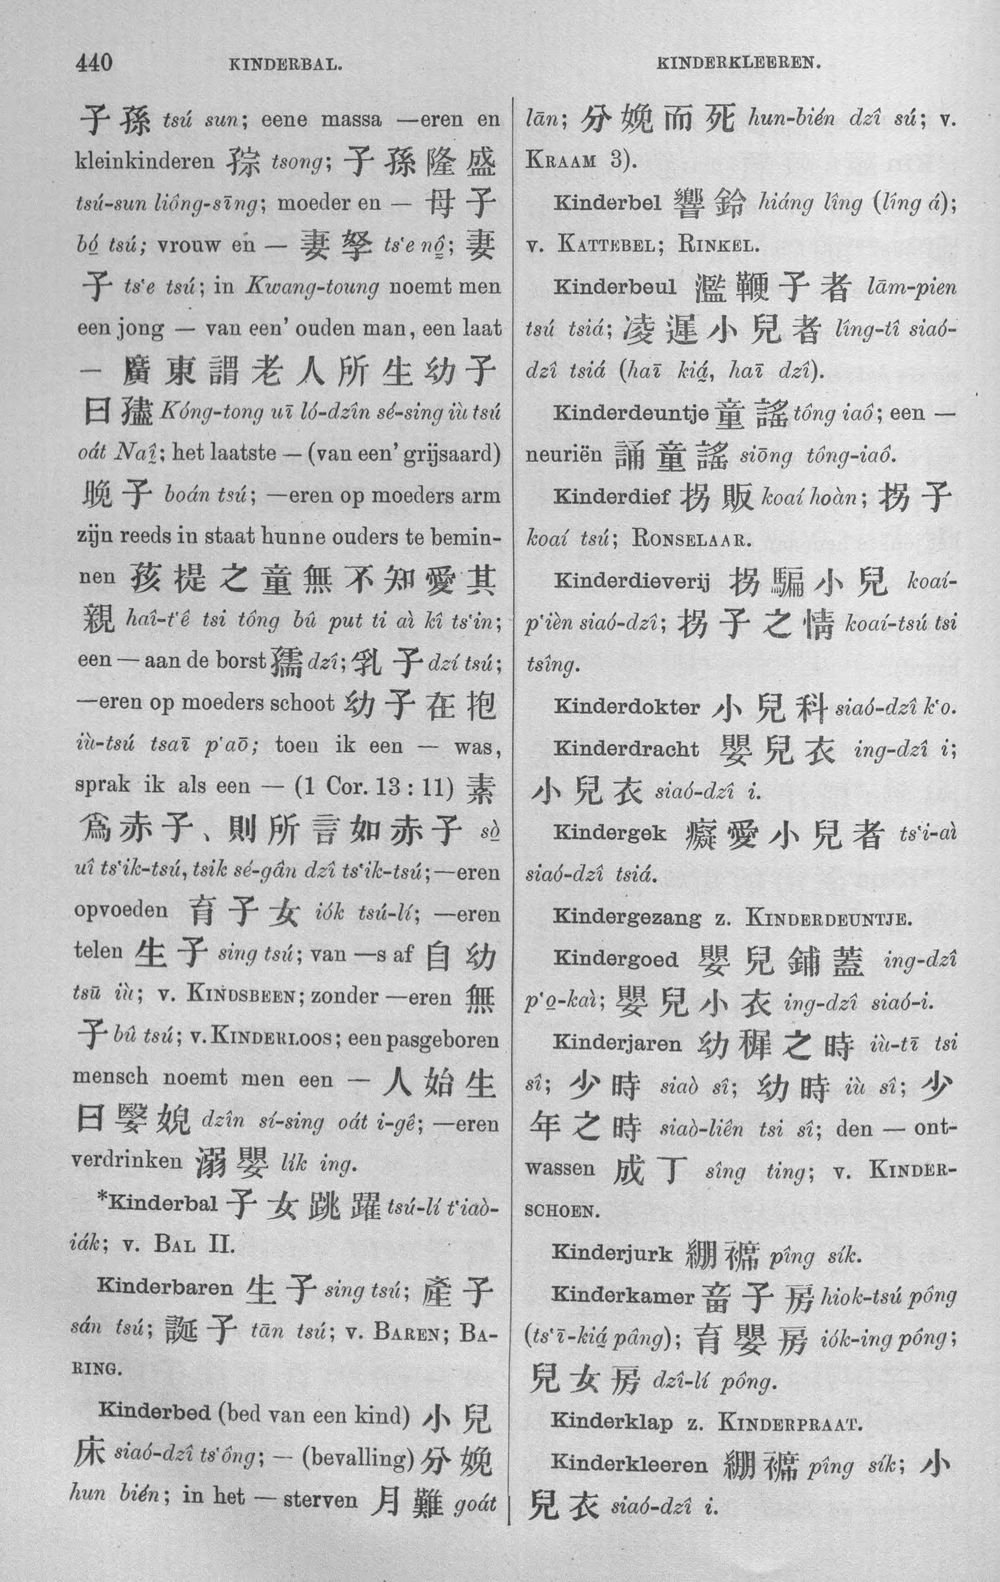 440 KINDERBAL. KINDERKLEEREN.
子 孫 tsú sun; eene massa —eren en
kleinkinderen 孮 tsong; 子 孫 隆 盛
tsú-sun liông-sīng; moeder en — 母 子
bó̤ tsú; vrouw en — 妻 孥 ts‘e nô̤; 妻
子 ts‘e tsú; in Kwang-toung noemt men
een jong — van een’ ouden man, een laat
— 廣 東 謂 老 人 所 生 幼 子
曰 𡥧 Kóng-tong uī ló-dzîn sé-sing iù tsú
oát Naî̤; het laatste — (van een’ grijsaard)
晚 子 boán tsú; —eren op moeders arm
zijn reeds in staat hunne ouders te bemin-
nen 孩 提 之 童 無 不 知 愛 其
親 haî-t‘ê tsi tông bû put ti aì kî ts‘in;
een — aan de borst 孺 dzî; 乳 子 dzí tsú;
—eren op moeders schoot 幼 子 在 抱
iù-tsú tsaī p‘aō; toen ik een — was,
sprak ik als een — (1 Cor. 13 : 11) 素
爲 赤 子、則 所 言 如 赤 子 sò̤
uî ts‘ik-tsú, tsik sé-gân dzî ts‘ik-tsú; —eren
opvoeden 育 子 女 iók tsú-lí; —eren
telen 生 子 sing tsú; van —s af 自 幼
tsū iù; v. KINDSBEEN; zonder —eren 無
子 bû tsú; v. KINDERLOOS; een pasgeboren
mensch noemt men een — 人 始 生
曰 嫛 婗 dzîn sí-sing oát i-gê; —eren
verdrinken 溺 嬰 lík ing.
*Kinderbal 子 女 跳 躍 tsú-lí t‘iaò-
iák; v. BAL II.
Kinderbaren 生 子 sing tsú; 產 子
sán tsú; 誕 子 tān tsú; v. BAREN; BA-
RING.
Kinderbed (bed van een kind) 小 兒
床 siaó-dzî ts‘ông; — (bevalling) 分 娩
hun bién; in het — sterven 月 難 goát
lān; 分 娩 而 死 hun-bién dzî sú; v.
KRAAM 3).
Kinderbel 響 鈴 hiáng lîng (lîng á);
v. KATTEBEL; RINKEL.
Kinderbeul 濫 鞭 子 者 lām-pien
tsú tsiá; 凌 遲 小 兒 者 lîng-tî siaó-
dzî tsiá (haī kiá̤, haī dzî).
Kinderdeuntje 童 謠 tông iaô; een —
neuriën 誦 童 謠 siōng tông-iaô.
Kinderdief 拐 販 koaí hoàn; 拐 子
koaí tsú; RONSELAAR.
Kinderdieverij 拐 騙 小 兒 koaí-
p‘ièn siaó-dzî; 拐 子 之 情 koaí-tsú tsi
tsîng.
Kinderdokter 小 兒 科 siaó-dzî k‘o.
Kinderdracht 嬰 兒 衣 ing-dzî i;
小 兒 衣 siaó-dzî i.
Kindergek 癡 愛 小 兒 者 ts‘i-aì
siaó-dzî tsiá.
Kindergezang z. KINDERDEUNTJE.
Kindergoed 嬰 兒 鋪 蓋 ing-dzî
p‘o̤-kaì; 嬰 兒 小 衣 ing-dzî siaó-i.
Kinderjaren 幼 穉 之 時 iù-tī tsi
sî; 少 時 siaò sî; 幼 時 iù sî; 少
年 之 時 siaò-liên tsi sî; den — ont-
wassen 成 丁 sîng ting; v. KINDER-
SCHOEN.
Kinderjurk 繃 褯 pîng sík.
Kinderkamer 畜 子 房 hiok-tsú pông
(ts‘ī-kiá̤ pâng); 育 嬰 房 iók-ing pông;
兒 女 房 dzî-lí pông.
Kinderklap z. KINDERPRAAT.
Kinderkleeren 繃 褯 pîng sík; 小
兒 衣 siaó-dzî i.